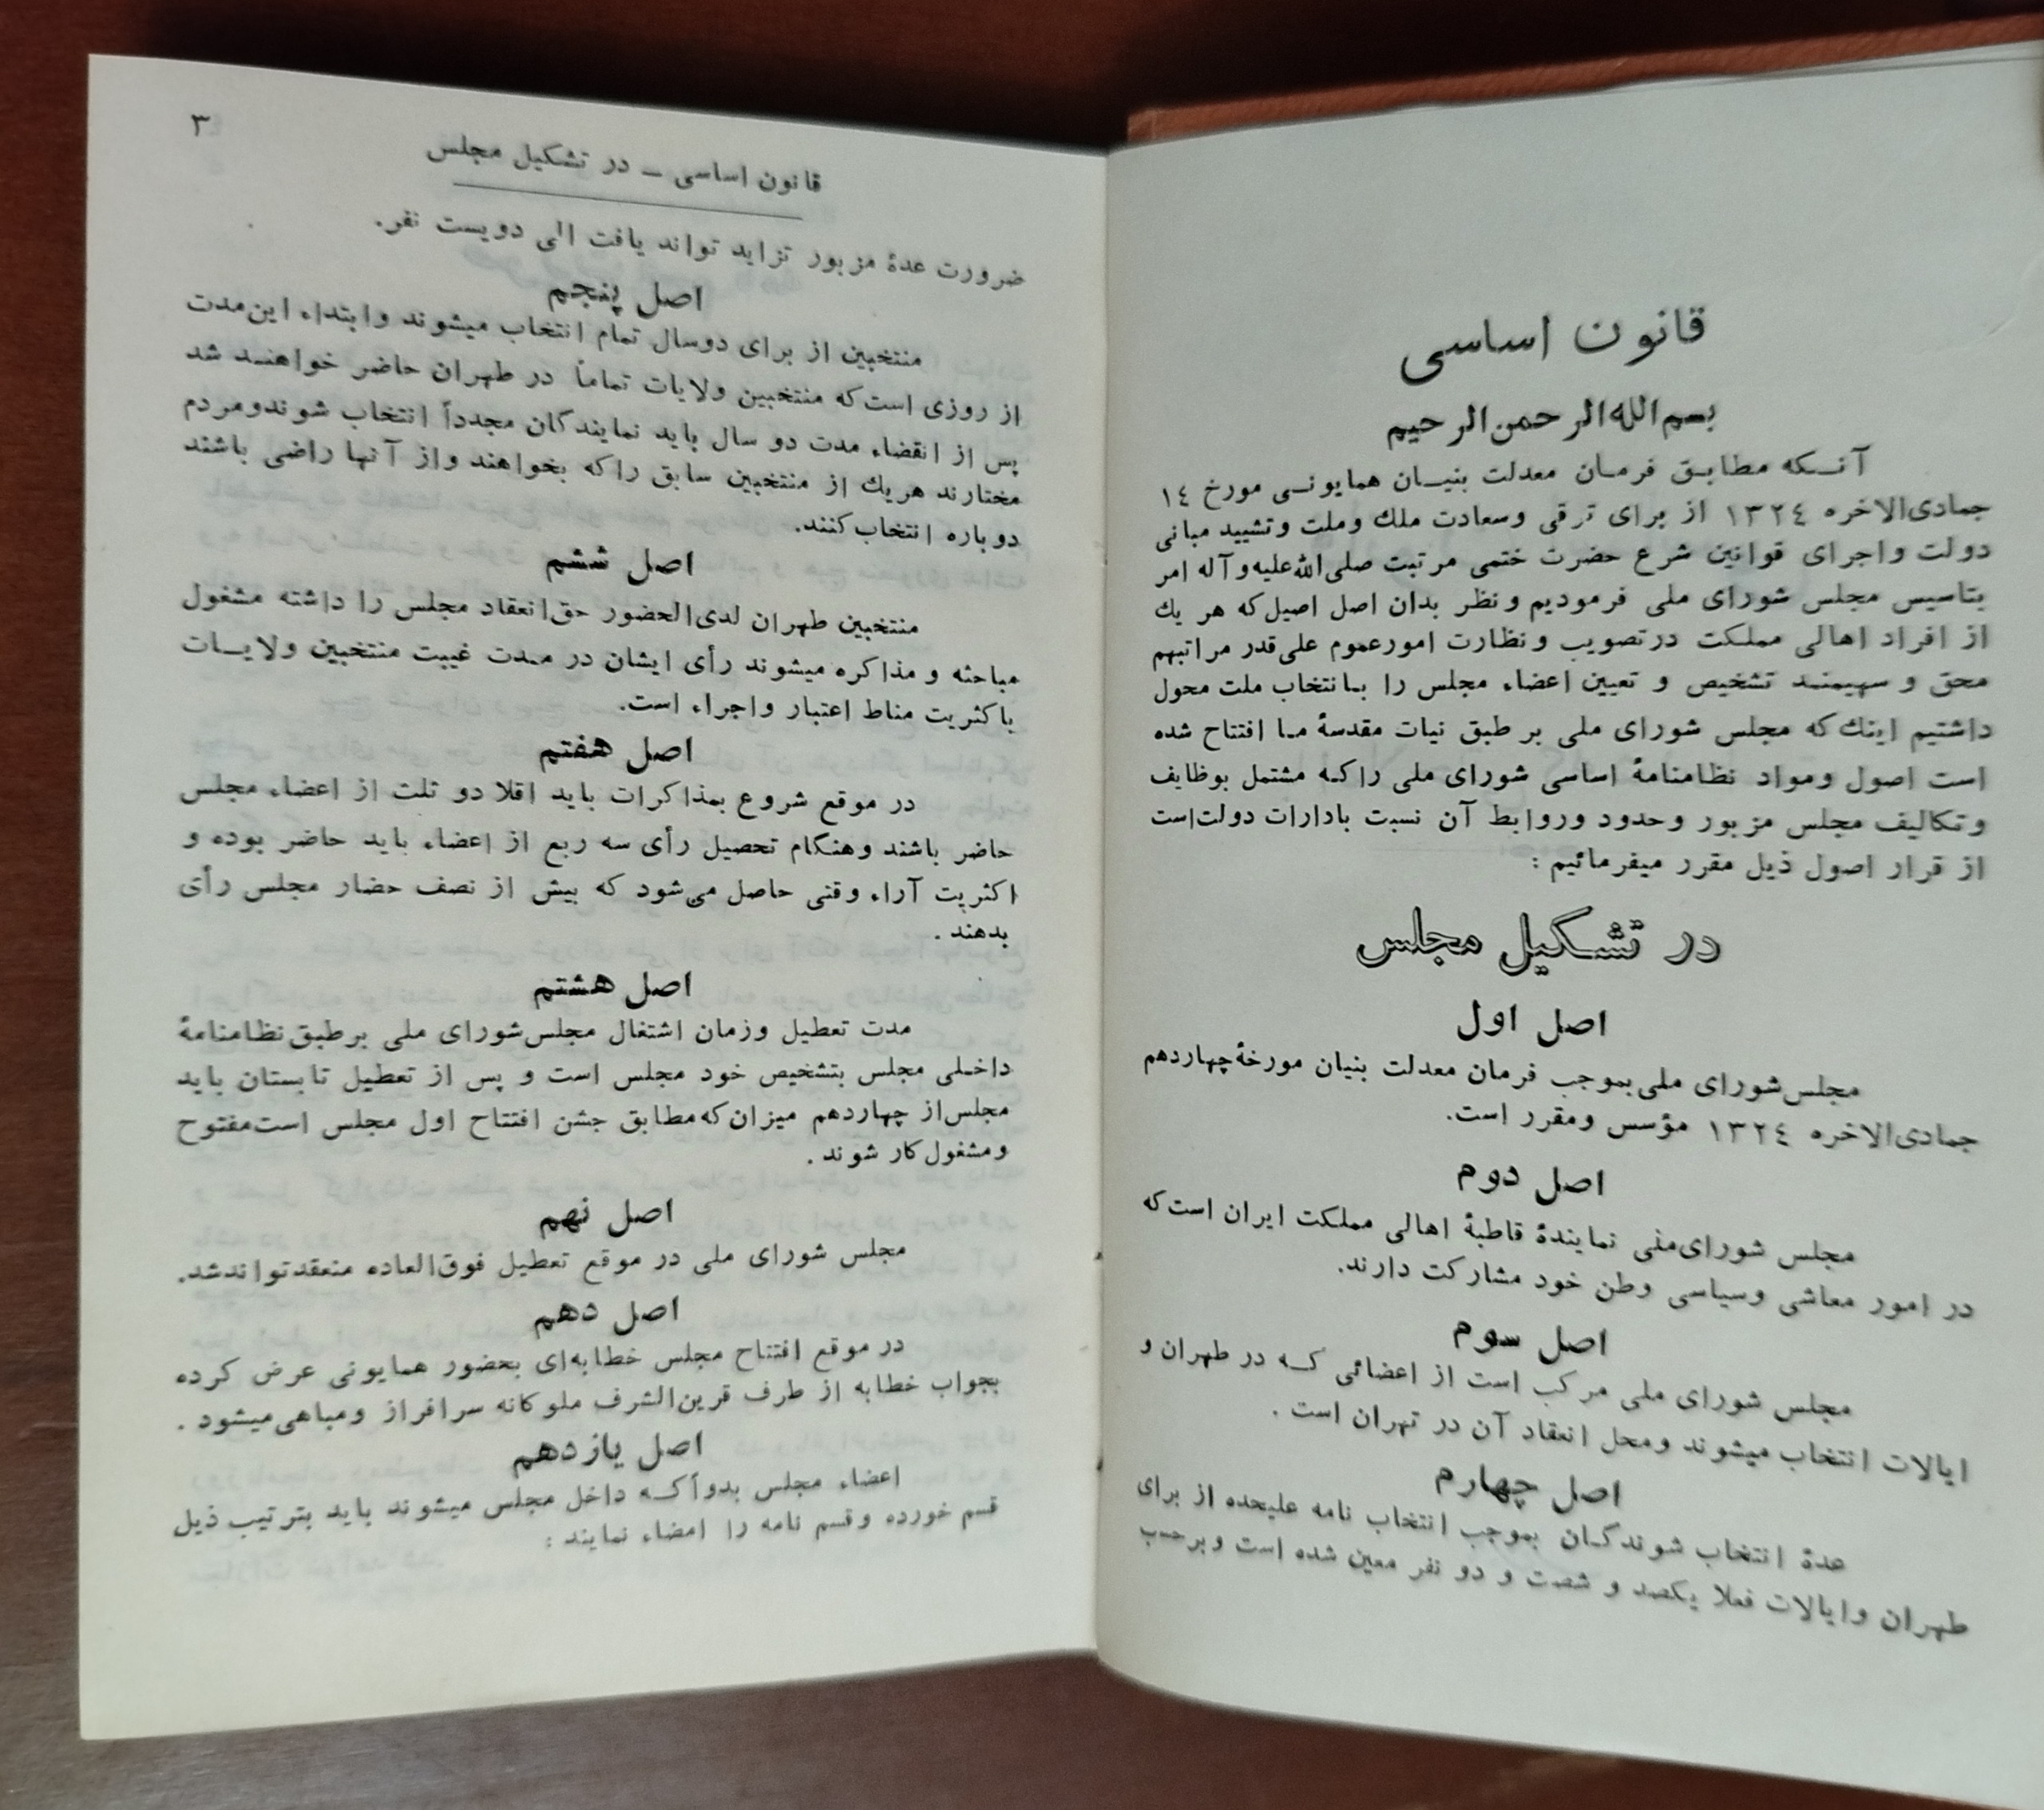 قانون اساسی
بسم‌الله‌الرحمن‌الرحیم
آنـکه مطابـق فرمـان معدلت بنیـان همایونـی مورخ ۱٤
جمادی‌الاخره ۱۳۲٤ از برای ترقی وسعادت ملك وملت وتشیید مبانی
دولت واجرای قوانین شرع حضرت ختمی مرتبت صلی‌الله‌علیه‌وآله امر
بتاسیس مجلس شورای ملی فرمودیم ونظر بدان اصل اصیل‌که هر یك
از افراد اهالی مملکت درتصویب ونظارت امورعموم علی‌قدر مراتبهم
محق و سهیمنـد تشخیص و تعیین اعضاء مجلس را بـانتخاب ملت محول
داشتیم اینك‌که مجلس شورای ملی بر طبق نیات مقدسهٔ مـا افتتاح شده
است اصول ومواد نظامنامهٔ اساسی شورای ملی راکـه مشتمل بوظایف
وتکالیف مجلس مزبور وحدود وروابط آن نسبت بادارات دولت‌است
از قرار اصول ذیل مقرر میفرمائیم :
در تشـکیل مجلس
اصل اول
مجلس‌شورای ملی‌بموجب فرمان معدلت بنیان مورخهٔ‌چهاردهم
جمادی‌الاخره ۱۳۲٤ مؤسس ومقرر است.
اصل دوم
مجلس شورای‌ملی نمایندهٔ قاطبهٔ اهالی مملکت ایران است‌که
در امور معاشی وسیاسی وطن خود مشارکت دارند.
اصل سوم
مجلس شورای ملی مرکب است از اعضائی کـه در طهران و
ایالات انتخاب میشوند ومحل انعقاد آن در تهران است .
اصل چهارم
عدهٔ انتخاب شوندگـان بموجب انتخاب نامه علیحده از برای
طهران وایالات فعلا یکصد و شصت و دو نفر معین شده است وبرحسب
قانون اساسی – در تشکیل مجلس
۳
ضرورت عدهٔ مزبور تزاید تواند یافت الی دویست نفر.
اصل پنجم
منتخبین از برای دوسال تمام انتخاب میشوند وابتداء این‌مدت
از روزی است‌که منتخبین ولایات تماماً در طهران حاضر خواهنـد شد
پس از انقضاء مدت دو سال باید نمایندگان مجدداً انتخاب شوندومردم
مختارند هریك از منتخبین سابق راکه بخواهند واز آنها راضی باشند
دوباره انتخاب‌کنند.
اصل ششم
منتخبین طهران لدی‌الحضور حق‌انعقاد مجلس را داشته مشغول
مباحثه و مذاکره میشوند رأی ایشان در مـدت غیبت منتخبین ولایـات
باکثریت مناط اعتبار واجراء است.
اصل هفتم
در موقع شروع بمذاکرات باید اقلا دو ثلت از اعضاء مجلس
حاضر باشند وهنگام تحصیل رأی سه ربع از اعضاء باید حاضر بوده و
اکثریت آراء وقتی حاصل می‌شود که بیش از نصف حضار مجلس رأی
بدهند .
اصل هشتم
مدت تعطیل وزمان اشتغال مجلس‌شورای ملی برطبق‌نظامنامهٔ
داخـلی مجلس بتشخیص خود مجلس است و پس از تعطیل تابستان باید
مجلس‌از چهاردهم میزان‌که‌مطابق جشن افتتاح اول مجلس است‌مفتوح
ومشغول‌کار شوند .
اصل نهم
مجلس شورای ملی در موقع تعطیل فوق‌العاده منعقدتواندشد.
اصل دهم
در موقع افتتاح مجلس خطابه‌ای بحضور همایونی عرض کرده
بجواب خطابه از طرف قرین‌الشرف ملوکانه سرافراز ومباهی‌میشود .
اصل یازدهم
اعضاء مجلس بدواًکـه داخل مجلس میشوند باید بترتیب‌ذیل
قسم خورده وقسم نامه را امضاء نمایند :